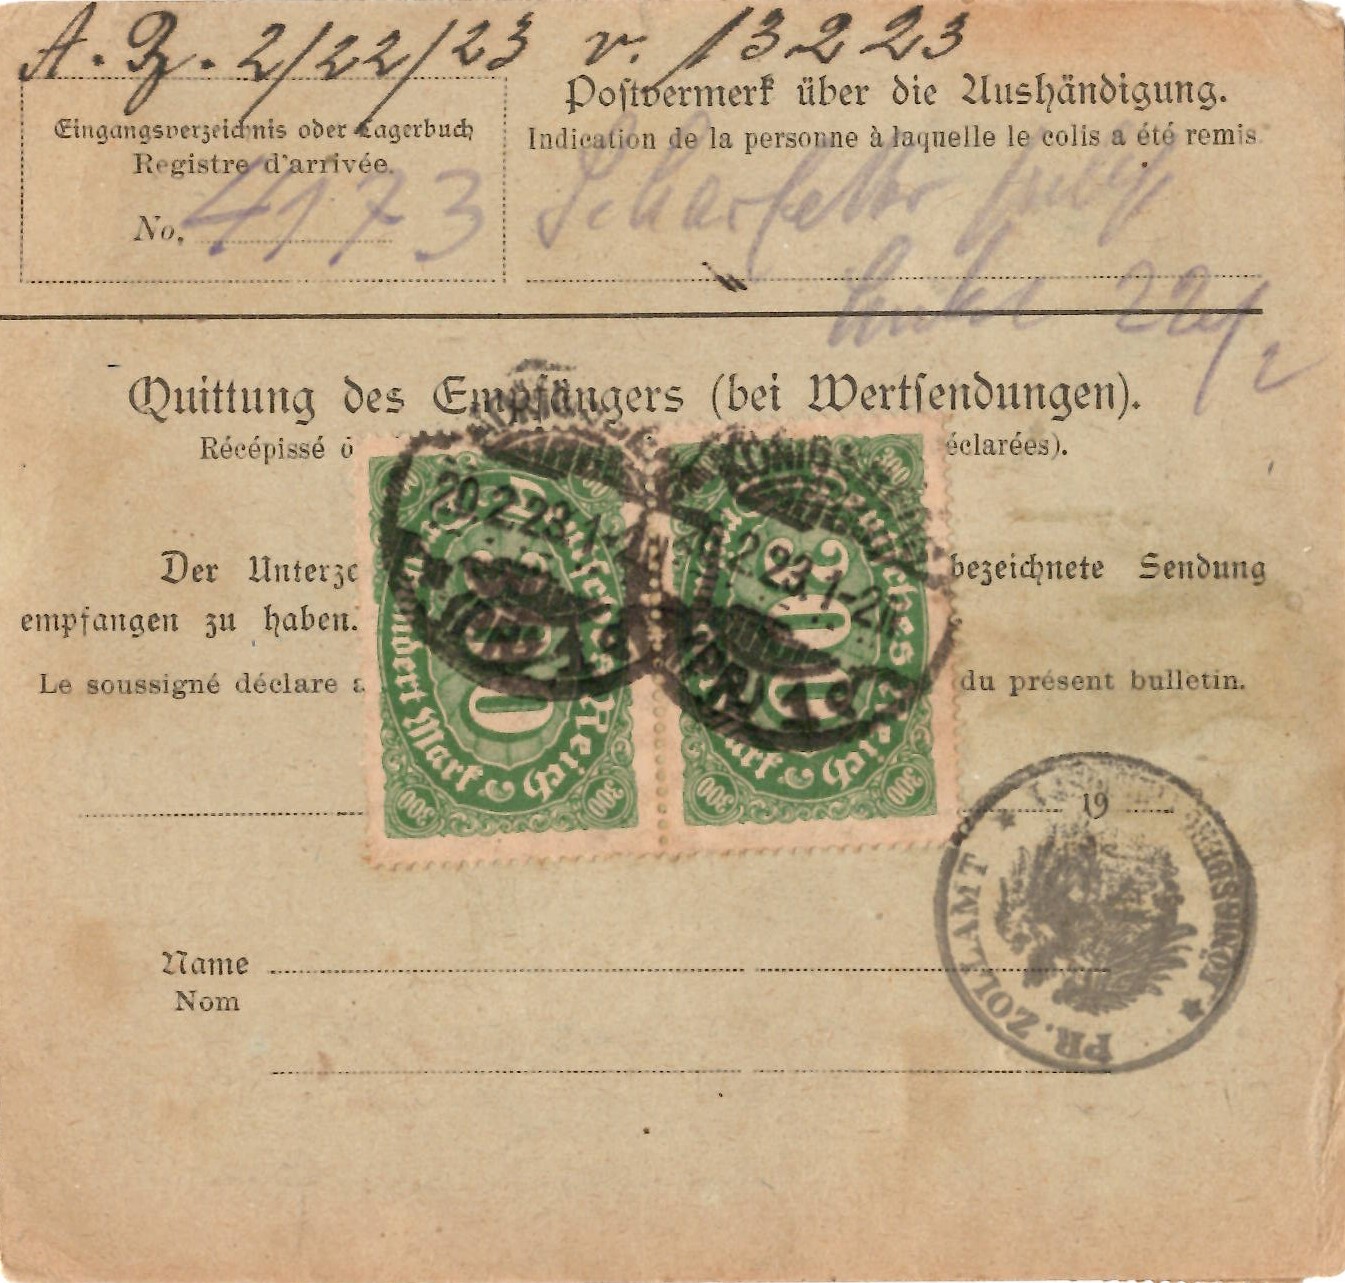 A. Z. 2/22/23 v. 13223
Eingangsverzeichnis oder Lagerbuch
Registre d'arrivée.
No. 4173
Postvermerk über die Aushändigung.
Indication de la personne à laquelle le colis a été remis
22/2
Quittung des Empfängers (bei Wertsendungen).
Récépissé éclarées).
Der Unterze bezeichnete Sendung
empfangen zu haben.
Le soussigné déclare du présent bulletin.
300 Deutsches Reich
Dreihundert Mark
300 300
300 Deutsches Reich
300
Mark
300 300
20.2.23.1-2N
KÖNIGSBERG
2.23.1-2N
(PR) 19
19
PR. ZOLLAMT
KÖNIGSBERG
Name
Nom